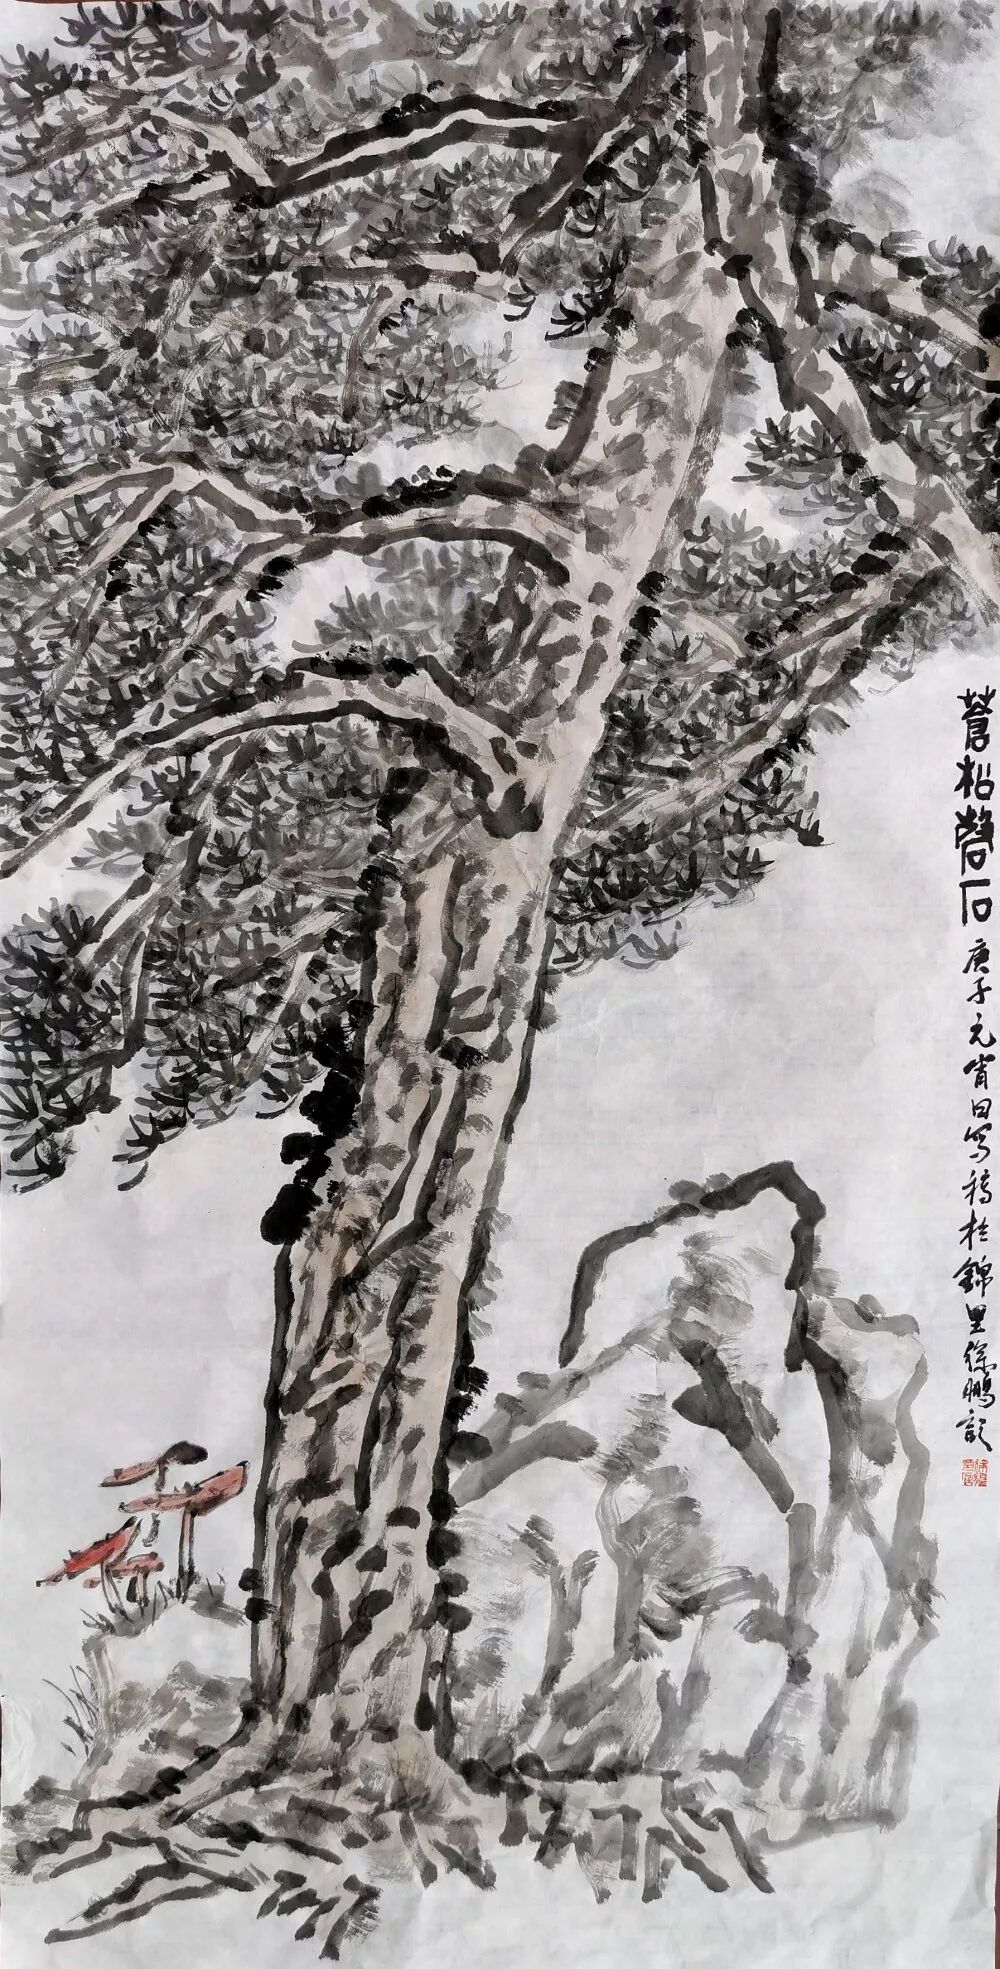 蒼松磐石
庚子元宵日写稿於錦里徐鵬